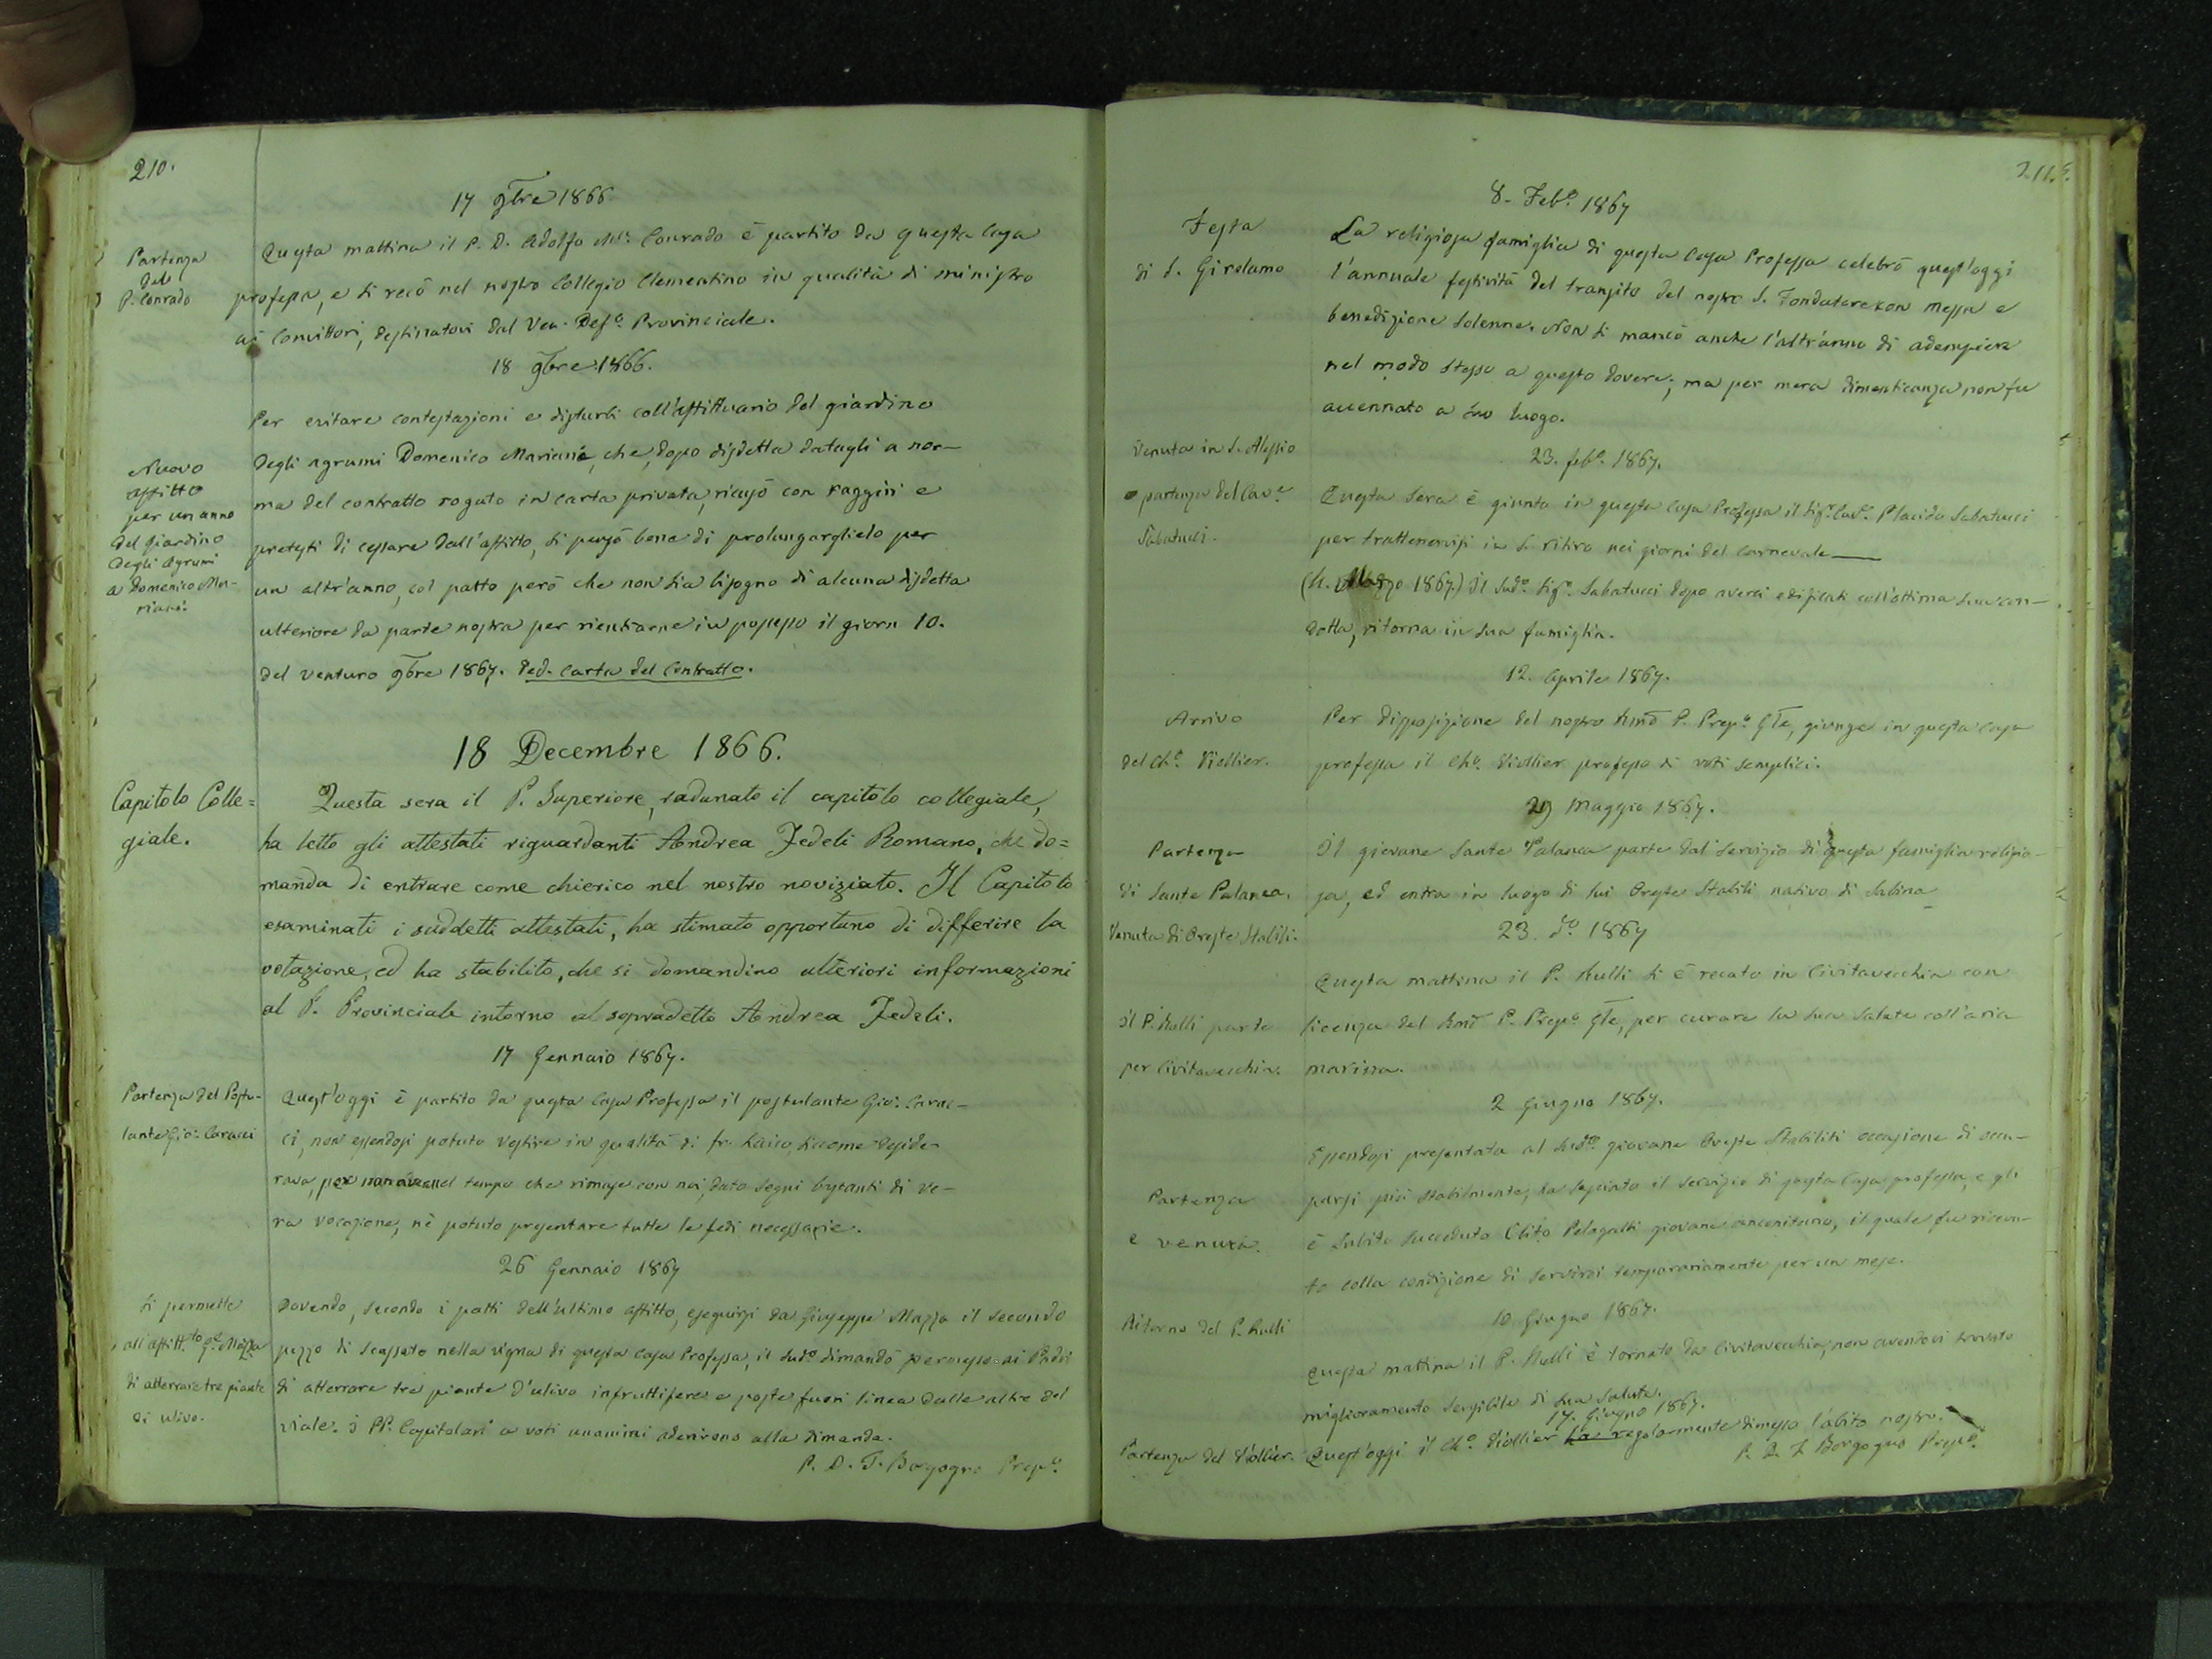 210.
17 9bre 1866
Partenza
del
P. Conrado
Questa mattina il P. D. Adolfo Ma. Conrado è partito da questa Casa
professa, e si recò nel nostro Collegio Clementino in qualità di ministro
ai Convittori, destinatovi dal Ven. Defo. Provinciale.
18 9bre 1866.
Nuovo
affitto
per un anno
del giardino
degli agrumi
a Domenico Ma-
riani
Per evitare contestazioni e disturbi coll'affittuario del giardino
degli agrumi Domenico Mariani, che, dopo disdetta datagli a nor-
ma del contratto rogato in carta privata, ricusò con raggiri e
pretesti di cessare dall'affitto, si pensò bene di prolungarglielo per
un altr'anno, col patto però che non sia bisogno di alcuna disdetta
ulteriore da parte nostra per rientrarne in possesso il giorn 10.
del venturo 9bre 1867. Ved. carta del Contratto.
18 Decembre 1866.
Capitolo Colle=
giale.
Questa sera il P. Superiore, radunato il capitolo collegiale,
ha letto gli attestati riguardanti Andrea Fedeli Romano, che do=
manda di entrare come chierico nel nostro noviziato. Il Capitolo
esaminati i suddetti attestati, ha stimato opportuno di differire la
votazione, ed ha stabilito, che si domandino ulteriori informazioni
al P. Provinciale intorno al sopradetto Andrea Fedeli.
17 Gennaio 1867.
Partenza del Postu-
lante Gio: Caracci
Quest'oggi è partito da questa Casa Professa il postulante Gio: Carac-
ci, non essendosi potuto vestire in qualità di fr. Laico, siccome deside-
rava, per non aver nel tempo che rimase con noi, dato segni bastanti di ve-
ra vocazione, nè potuto presentare tutte le fedi necessarie.
26 Gennaio 1867
Si permette
all'affitt.to Ge. Mazza
di atterrare tre piante
di ulivo.
Dovendo, secondo i patti dell'ultimo affitto, eseguirsi da Giuseppe Mazza il secondo
pezzo di scassato nella vigna di questa casa Professa, il sudo. dimandò permesso ai Padri
di atterrare tre piante d'ulivo infruttifere e poste fuori linea dalle altre del
viale. i PP. Capitolari a voti unanimi aderirono alla dimanda.
P. D. T. Borgogno Prepo.
211.
8. Febo. 1867
Festa
di S. Girolamo
La religiosa famiglia di questa Casa Professa celebrò quest'oggi
l'annuale festività del transito del nostro S. Fondatore con messa e
benedizione solenne. Non si mancò anche l'altr'anno di adempiere
nel modo stesso a questo dovere; ma per mera dimenticanza non fu
accennato a suo luogo.
23. febo. 1867.
Venuta in S. Alessio
e partenza del Cave.
Sabatucci.
Questa sera è giunto in questa casa Professa il Sigr. Cavr. Placido Sabatucci
per trattenervisi in S. ritiro nei giorni del Carnevale
Marzo 1867.) Il sudo. Sigr. Sabatucci dopo averci edificati coll'ottima sua con-
dotta, ritorna in sua famiglia.
12. Aprile 1867.
Arrivo
del Cho. Viollier.
Per disposizione del nostro Rmo P. Prepo. Gle, giunge in questa casa
professa il Cho. Viollier professo di voti semplici.
Maggio 1867.
Partenza
di Sante Palanca.
Venuta di Oreste Stabili.
Il giovane Sante Palanca parte dal servizio di questa famiglia religio-
sa, ed entra in luogo di lui Oreste Stabili nativo di Sabina
23. do. 1867
Il P. Rulli parte
per Civitavecchia.
Questa mattina il P. Rulli si è recato in Civitavecchia con
licenza del Rmo P. Prepo. Gle, per curare la sua salute coll'aria
marina.
2 Giugno 1867.
Partenza
e venuta.
Essendosi presentata al sudo. giovane Oreste Stabiliti occasione di occu-
parsi più stabilmente, ha lasciato il servizio di questa Casa professa, e gli
è subito succeduto Clito Pelagalli giovane anconitano, il quale fu ricevu-
to colla condizione di servirci temporariamente per un mese.
10 Giugno 1867.
Ritorno del P. Rulli
Questa mattina il P. Rulli è tornato da Civitavecchia, non avendovi trovato
miglioramento sensibile di sua salute.
17. Giugno 1867.
Partenza del Viollier.
Quest'oggi il Cho. Viollier ha regolarmente dimesso l'abito nostro.
P. D. T. Borgogno Prepo.